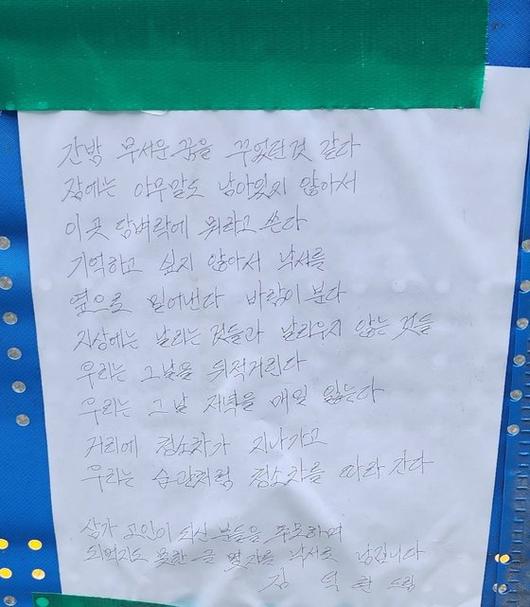 간밤 무서운 꿈을 꾸었던것 같다
잠에는 아무말도 남아있지 않아서
이곳 담벼락에 뭐라고 쓴다
기억하고 싶지 않아서 낙서를
옆으로 밀어낸다 바람이 분다
지상에는 날리는 것들과 날리우지 않는 것들
우리는 그날을 뒤적거린다
우리는 그날 저녁을 매일 잃는다
거리에 청소차가 지나가고
우리는 습관처럼 청소차를 따라 간다
삼가 고인이 되신 분들을 추모하며
되먹지도 못한 글 몇자를 낙서로 남깁니다
김 드림